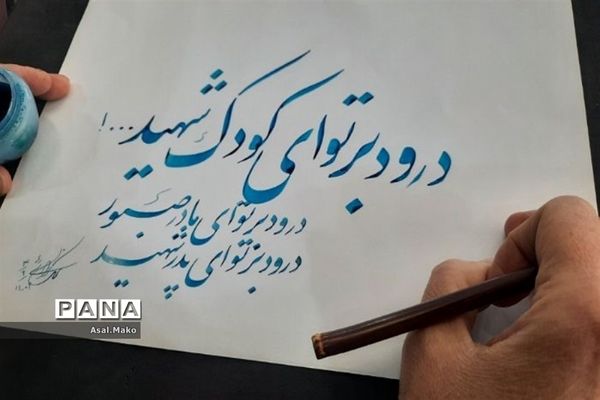 درود بر تو ای کودک شهید...!
درود بر تو ای مادر صبور
درود بر تو ای پدر شهید
PANA
Asal.Mako